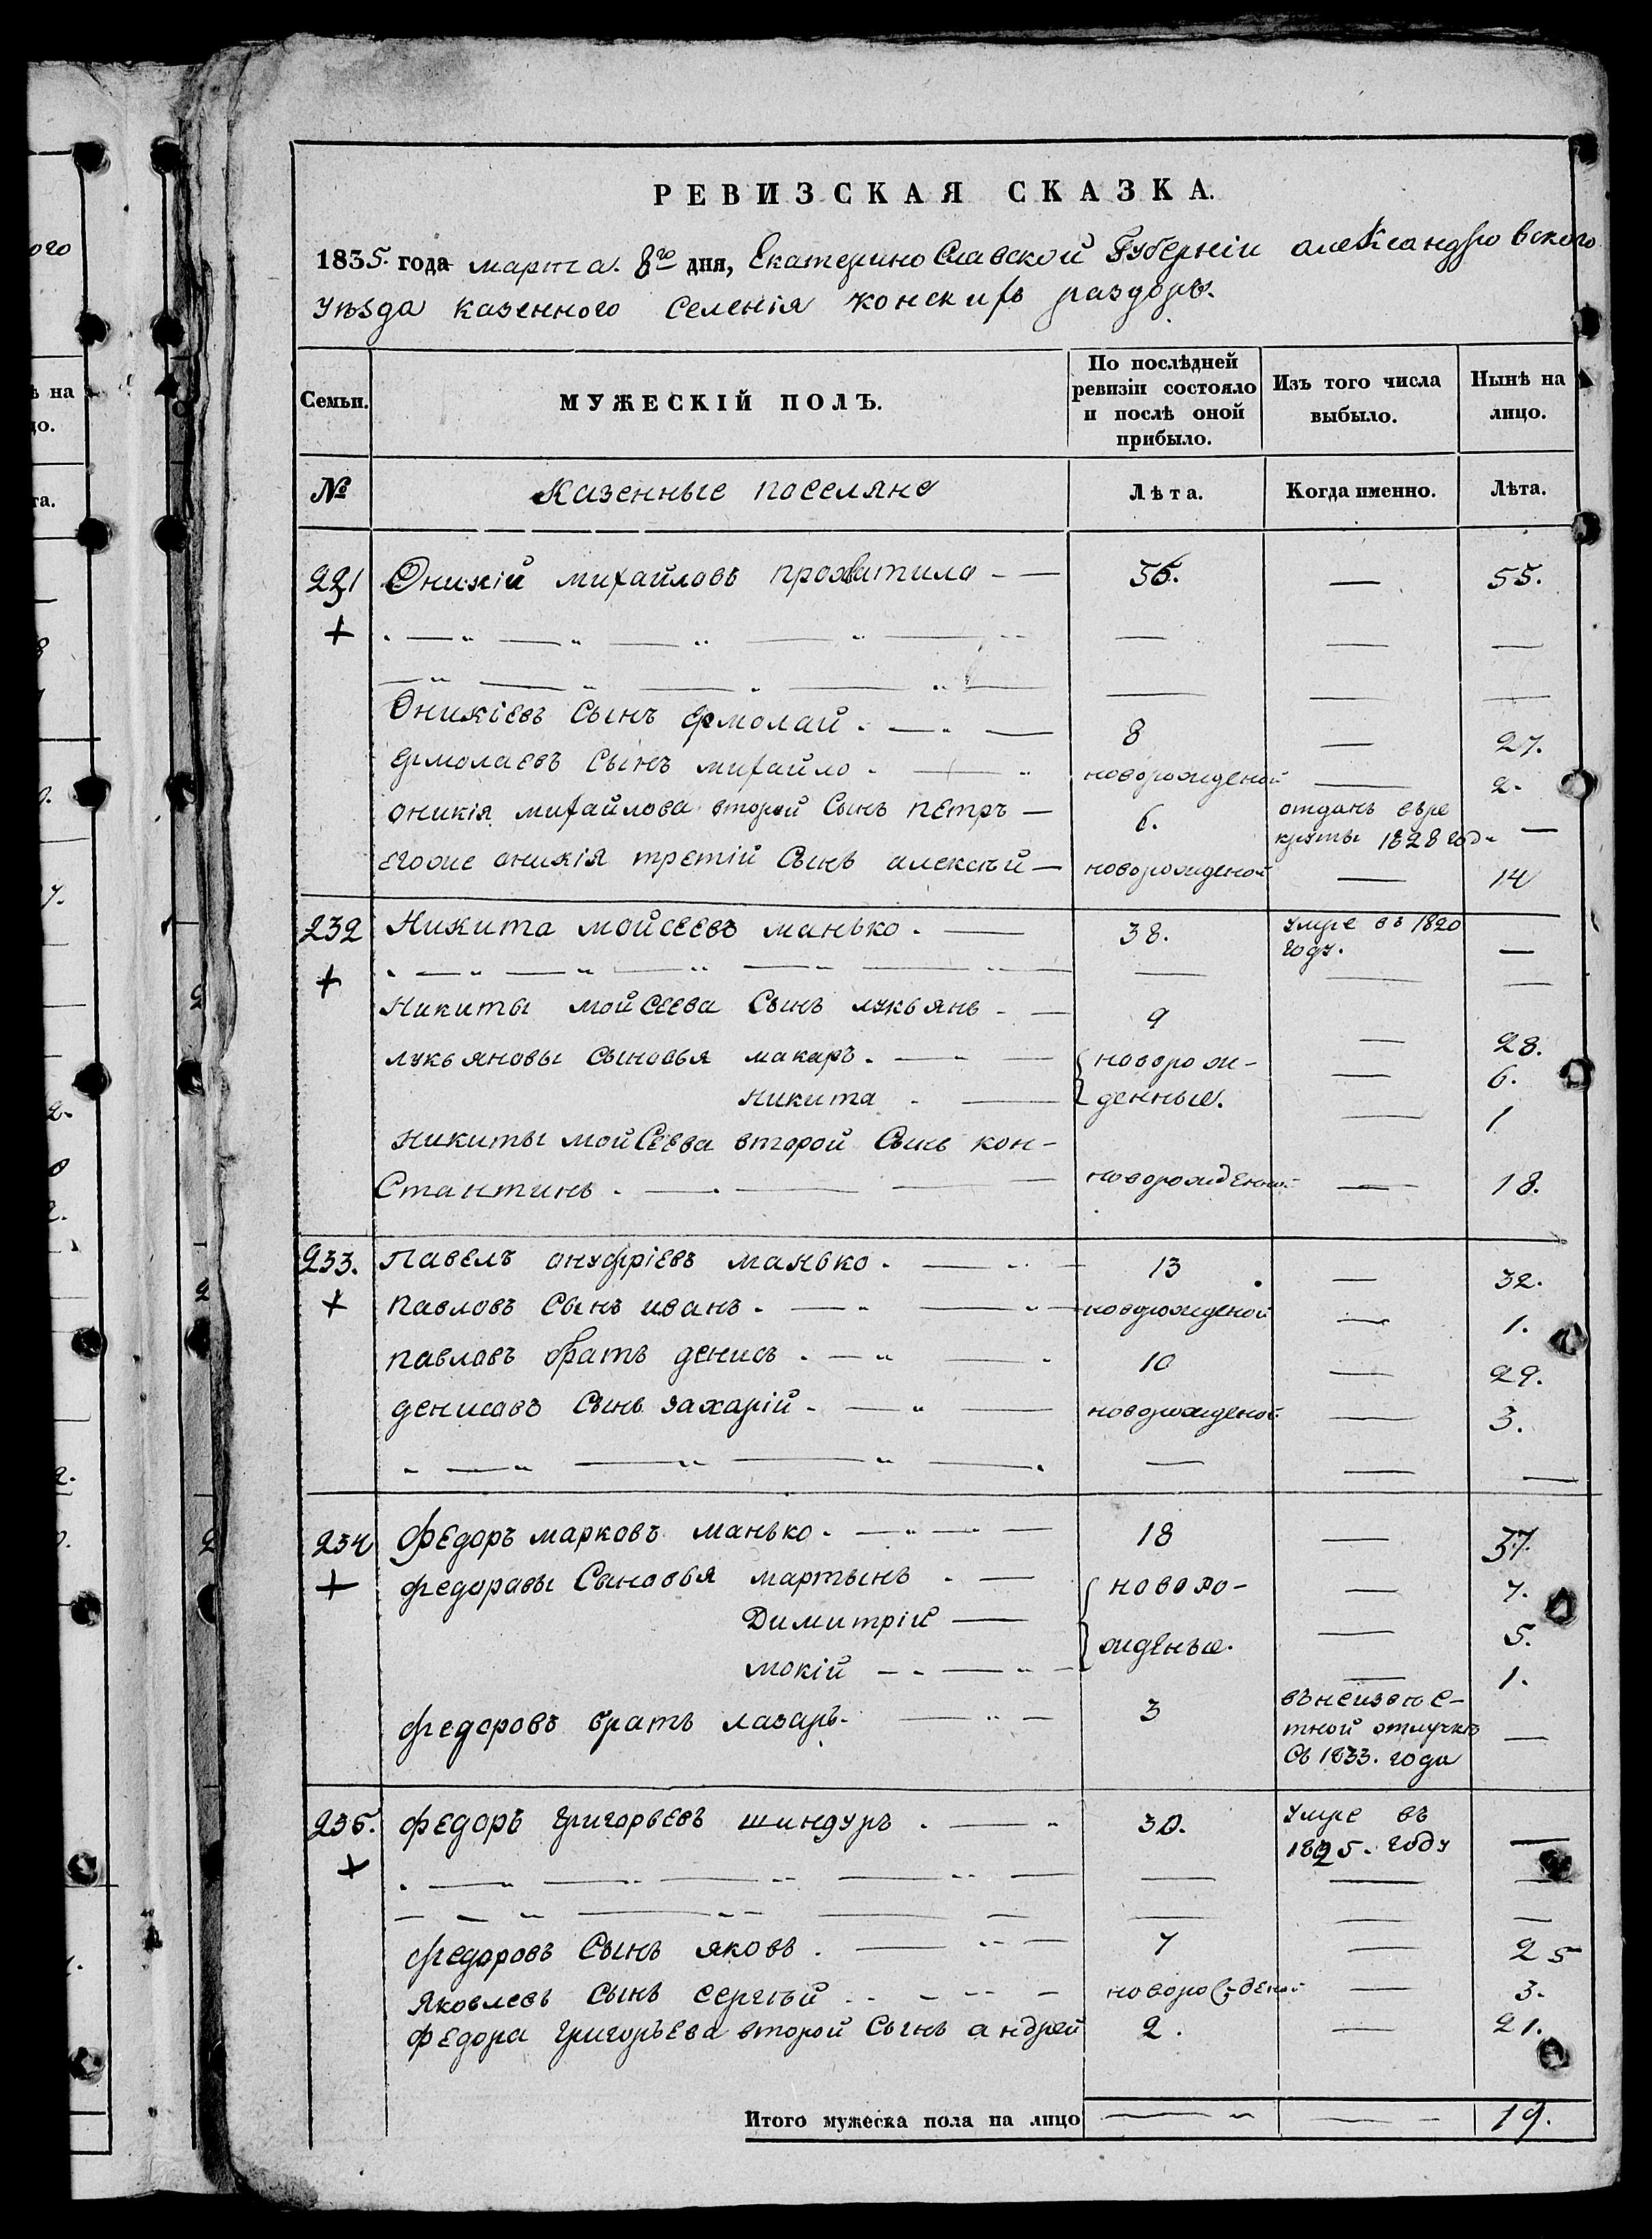 РЕВИЗСКАЯ СКАЗКА.
1835. года марта 8го дня, Екатеринославской Губерніи александровского
уѣзда казенного селенія конскихъ раздоръ.
Семьи. МУЖЕСКІЙ ПОЛЪ. По послѣдней ревизіи состояло и послѣ оной прибыло. Изъ того числа выбыло. Нынѣ на лицо.
№ Казенные поселяне Лѣта. Когда именно. Лѣта.
Оникій михайловъ прохватило — 55.
Оникіевъ Сынъ ермолай 8 — 27.
ермолаевъ Сынъ михайло новорожденой — 2.
оникія михайлова второй Сынъ петръ 6. отданъ въре
круты 1828 год —
егоже оникія третій Сынъ алексѣй новорожденой — 14
232 Никита мойсеевъ манько 38. умре въ 1820
году. —
Никиты мойсеева Сынъ лукьянъ 9 — 28.
лукьяновы сыновья макаръ новорож- — 6.
никита денные. — 1
никиты мойсеева второй Сынъ кон-
Стантинъ новорожденой — 18.
233. Павелъ онуфріевъ манько 13 — 32.
павловъ Сынъ иванъ новорожденой — 1.
павловъ братъ денисъ 10 — 29.
денисовъ Сынъ захарій новорожденой — 3.
234 Федоръ марковъ манько 18 — 37.
федоровы Сыновья мартынъ новоро- — 7.
Димитрій жденые. — 5.
мокій — 1.
федоровъ братъ лазарь 3 въ неизвѣс-
тной отлучкѣ —
съ 1833. года
235. Федоръ григорьевъ шиндуръ 30. умре въ
1825. году —
федоровъ Сынъ яковъ 7 — 25
Яковлевъ Сынъ сергѣй — 3.
федора григорьева второй Сынъ андрей 2. — 21.
Итого мужеска пола на лицо — — 19.